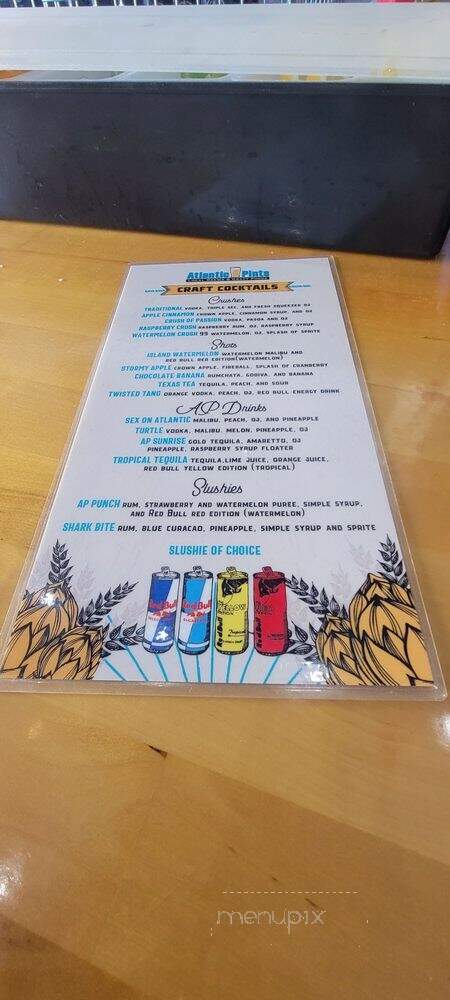 Atlantic Pints
CRAFT COCKTAILS
Crushes
TRADITIONAL VODKA, TRIPLE SEC, AND FRESH SQUEEZED OJ
APPLE CINNAMON CROWN APPLE, CINNAMON SYRUP, AND OJ
CRUSH OF PASSION VODKA, PASOA AND OJ
RASPBERRY CRUSH RASPBERRY RUM, OJ, RASPBERRY SYRUP
WATERMELON CRUSH 99 WATERMELON, OJ, SPLASH OF SPRITE
Shots
ISLAND WATERMELON WATERMELON MALIBU AND
RED BULL RED EDITION(WATERMELON)
STORMY APPLE CROWN APPLE, FIREBALL, SPLASH OF CRANBERRY
CHOCOLATE BANANA RUMCHATA, GODIVA, AND BANANA
TEXAS TEA TEQUILA, PEACH, AND SOUR
TWISTED TANG ORANGE VODKA, PEACH, OJ, RED BULL ENERGY DRINK
AP Drinks
SEX ON ATLANTIC MALIBU, PEACH, OJ, AND PINEAPPLE
TURTLE VODKA, MALIBU, MELON, PINEAPPLE, OJ
AP SUNRISE GOLD TEQUILA, AMARETTO, OJ
PINEAPPLE, RASPBERRY SYRUP FLOATER
TROPICAL TEQUILA TEQUILA,LIME JUICE, ORANGE JUICE,
RED BULL YELLOW EDITION (TROPICAL)
Slushies
AP PUNCH RUM, STRAWBERRY AND WATERMELON PUREE, SIMPLE SYRUP,
AND RED BULL RED EDITION (WATERMELON)
SHARK BITE RUM, BLUE CURACAO, PINEAPPLE, SIMPLE SYRUP AND SPRITE
SLUSHIE OF CHOICE
Red Bull
Red Bull
YELLOW
EDITION
Tropical
Red Bull
RED
EDITION
Red Bull
menupix